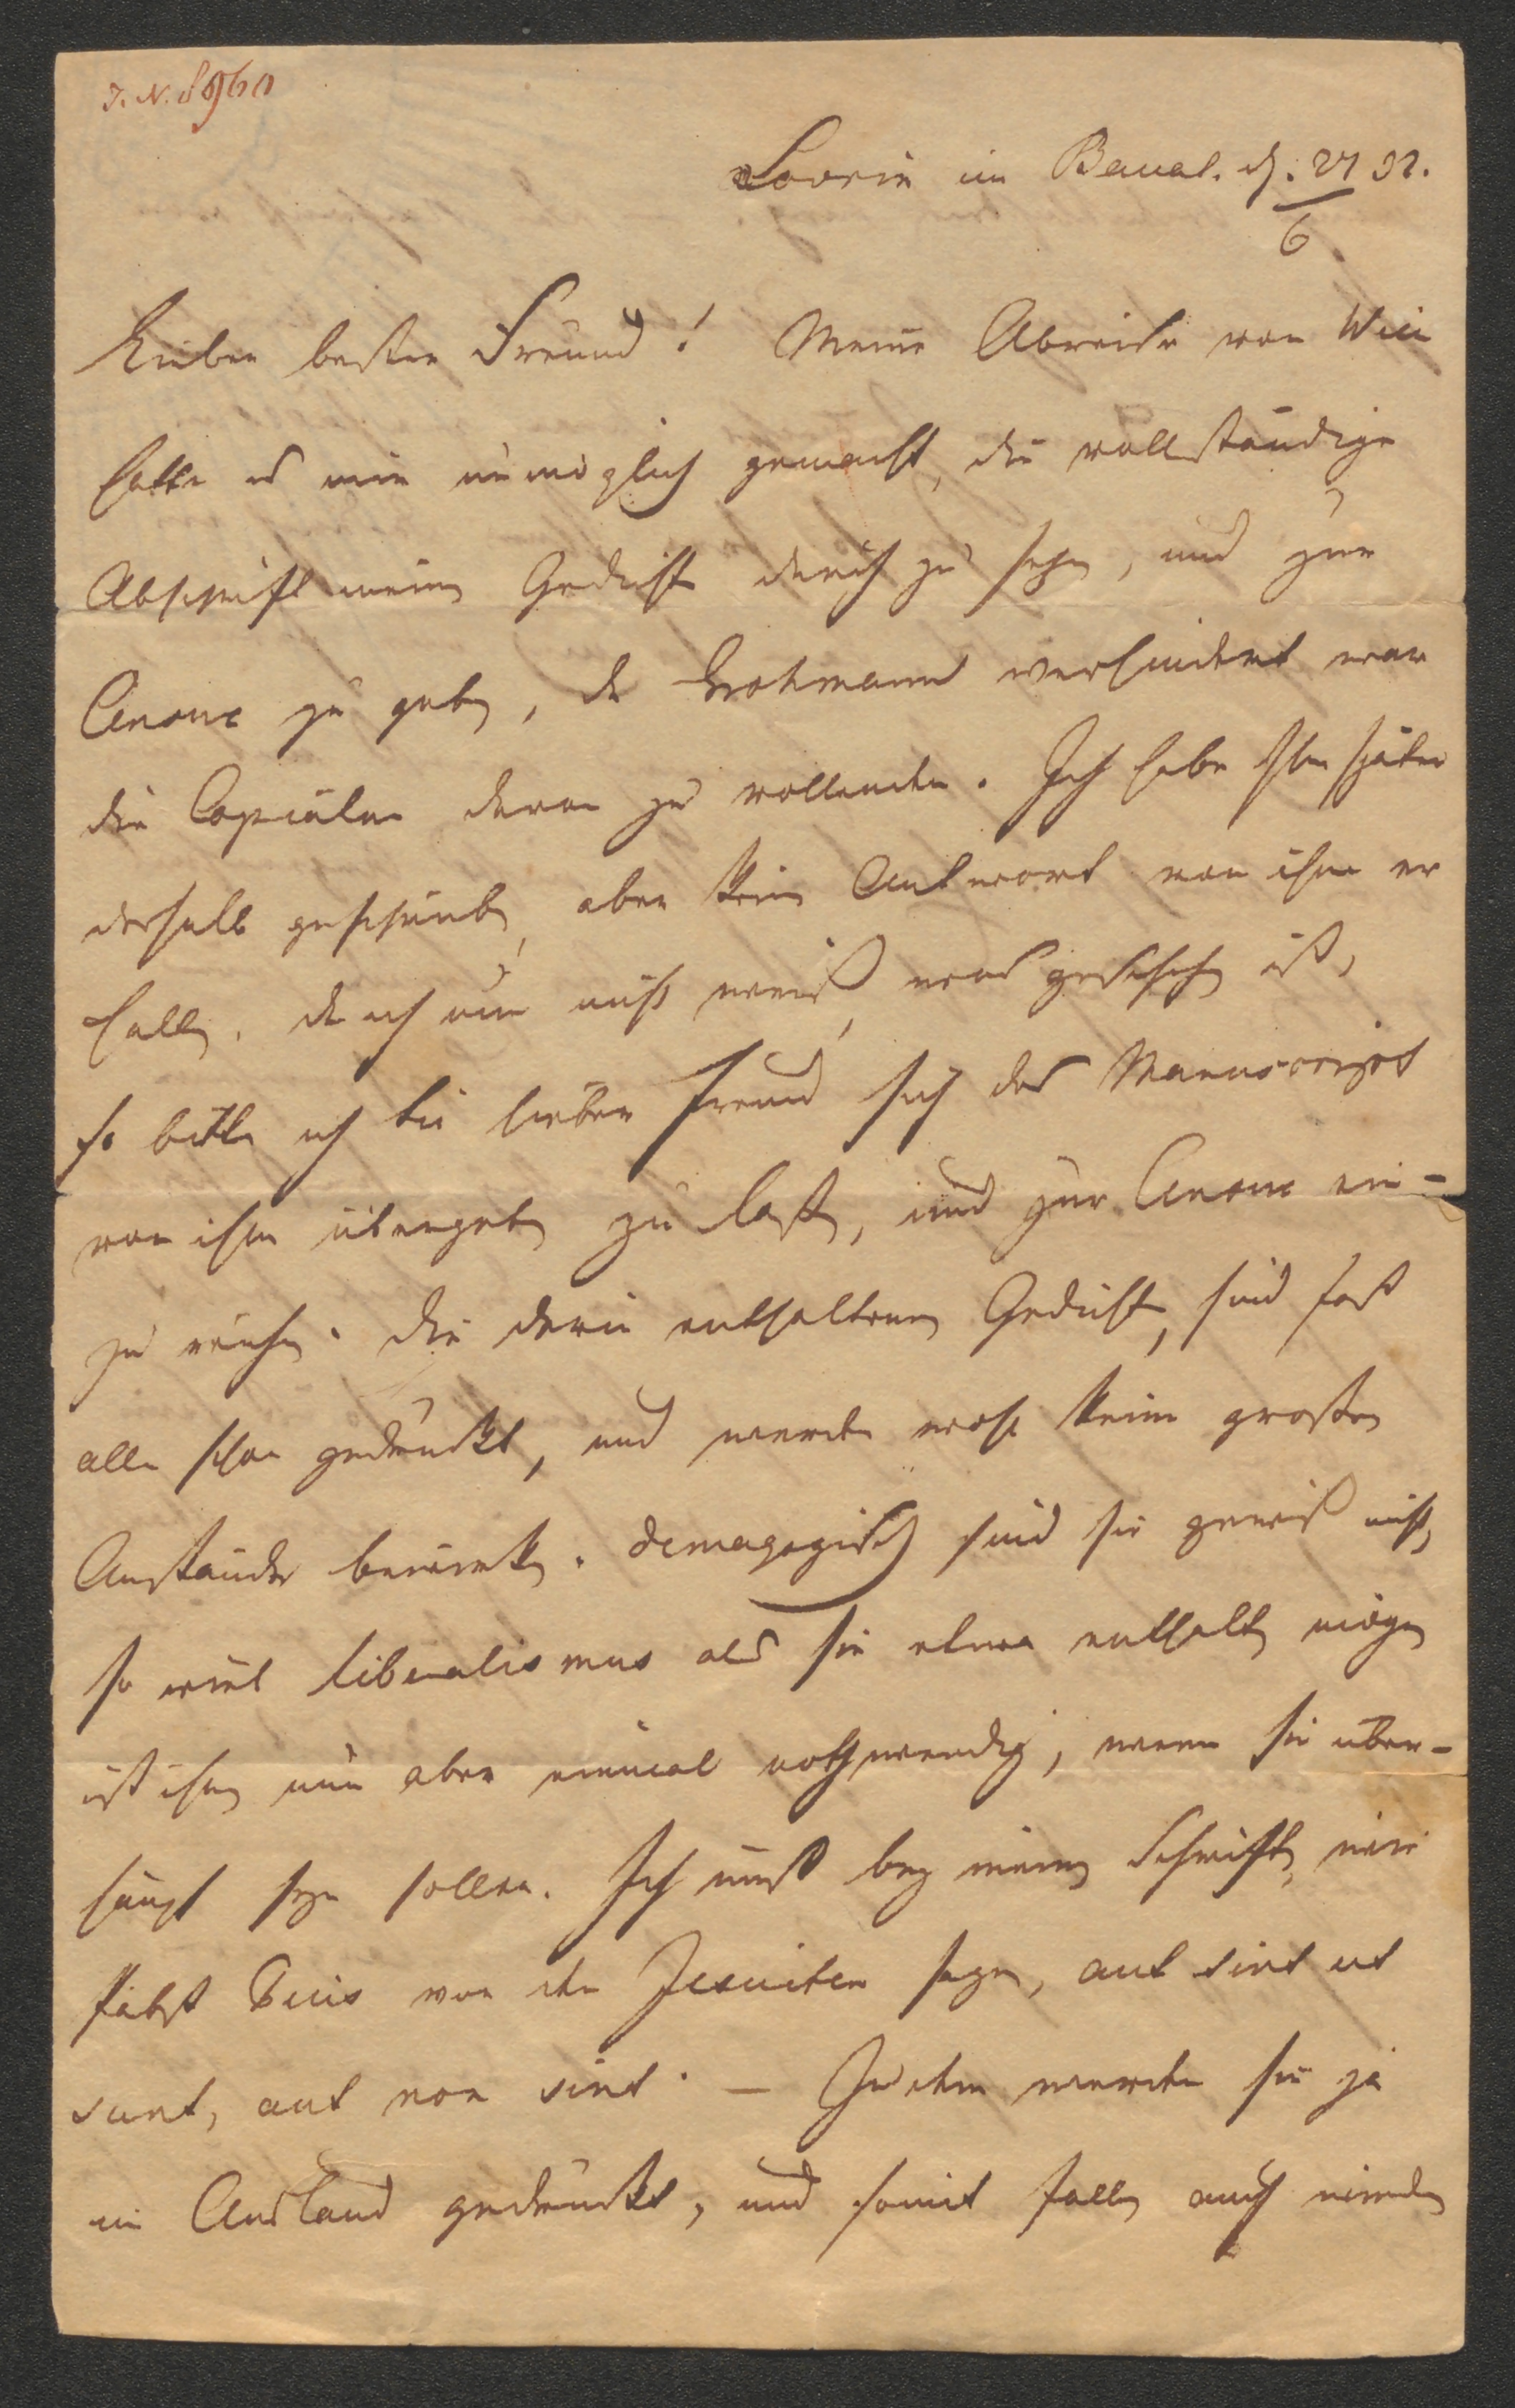 J. N. 8960
Lovrin im Banat. d. 27/6 32.
Lieber bester Freund! Meine Abreise von Wien
hatte es mir unmöglich gemacht, die vollständige
Abschrift meiner Gedichte durch zu sehen, und zur
Censur zu geben, da Grohmann verhindert war
die Copiatur davon zu vollenden. Ich habe ihm später
deshalb geschrieben, aber keine Antwort von ihm er
halten. Da ich nun nicht weiß, was geschehen ist,
so bitte ich Sie lieber Freund sich das Manuscript
von ihm übergeben zu lassen, und zur Censur ein-
zu reichen. Die darin enthaltenen Gedichte, sind fast
alle schon gedruckt, und werden wohl keine großen
Anstände bewirken. Demagogisch sind sie gewiß nicht,
so viel Liberalismus als sie etwa enthalten mögen
ist ihnen nun aber einmal nothwendig, wenn sie über-
haupt seyn sollen. Ich muß bey meinen Schriften, wie
Pabst Pius von den Jesuiten sagen, aut sint ut
sunt, aut non sint. — Zudem werden sie ja
im Ausland gedruckt, und somit fallen auch